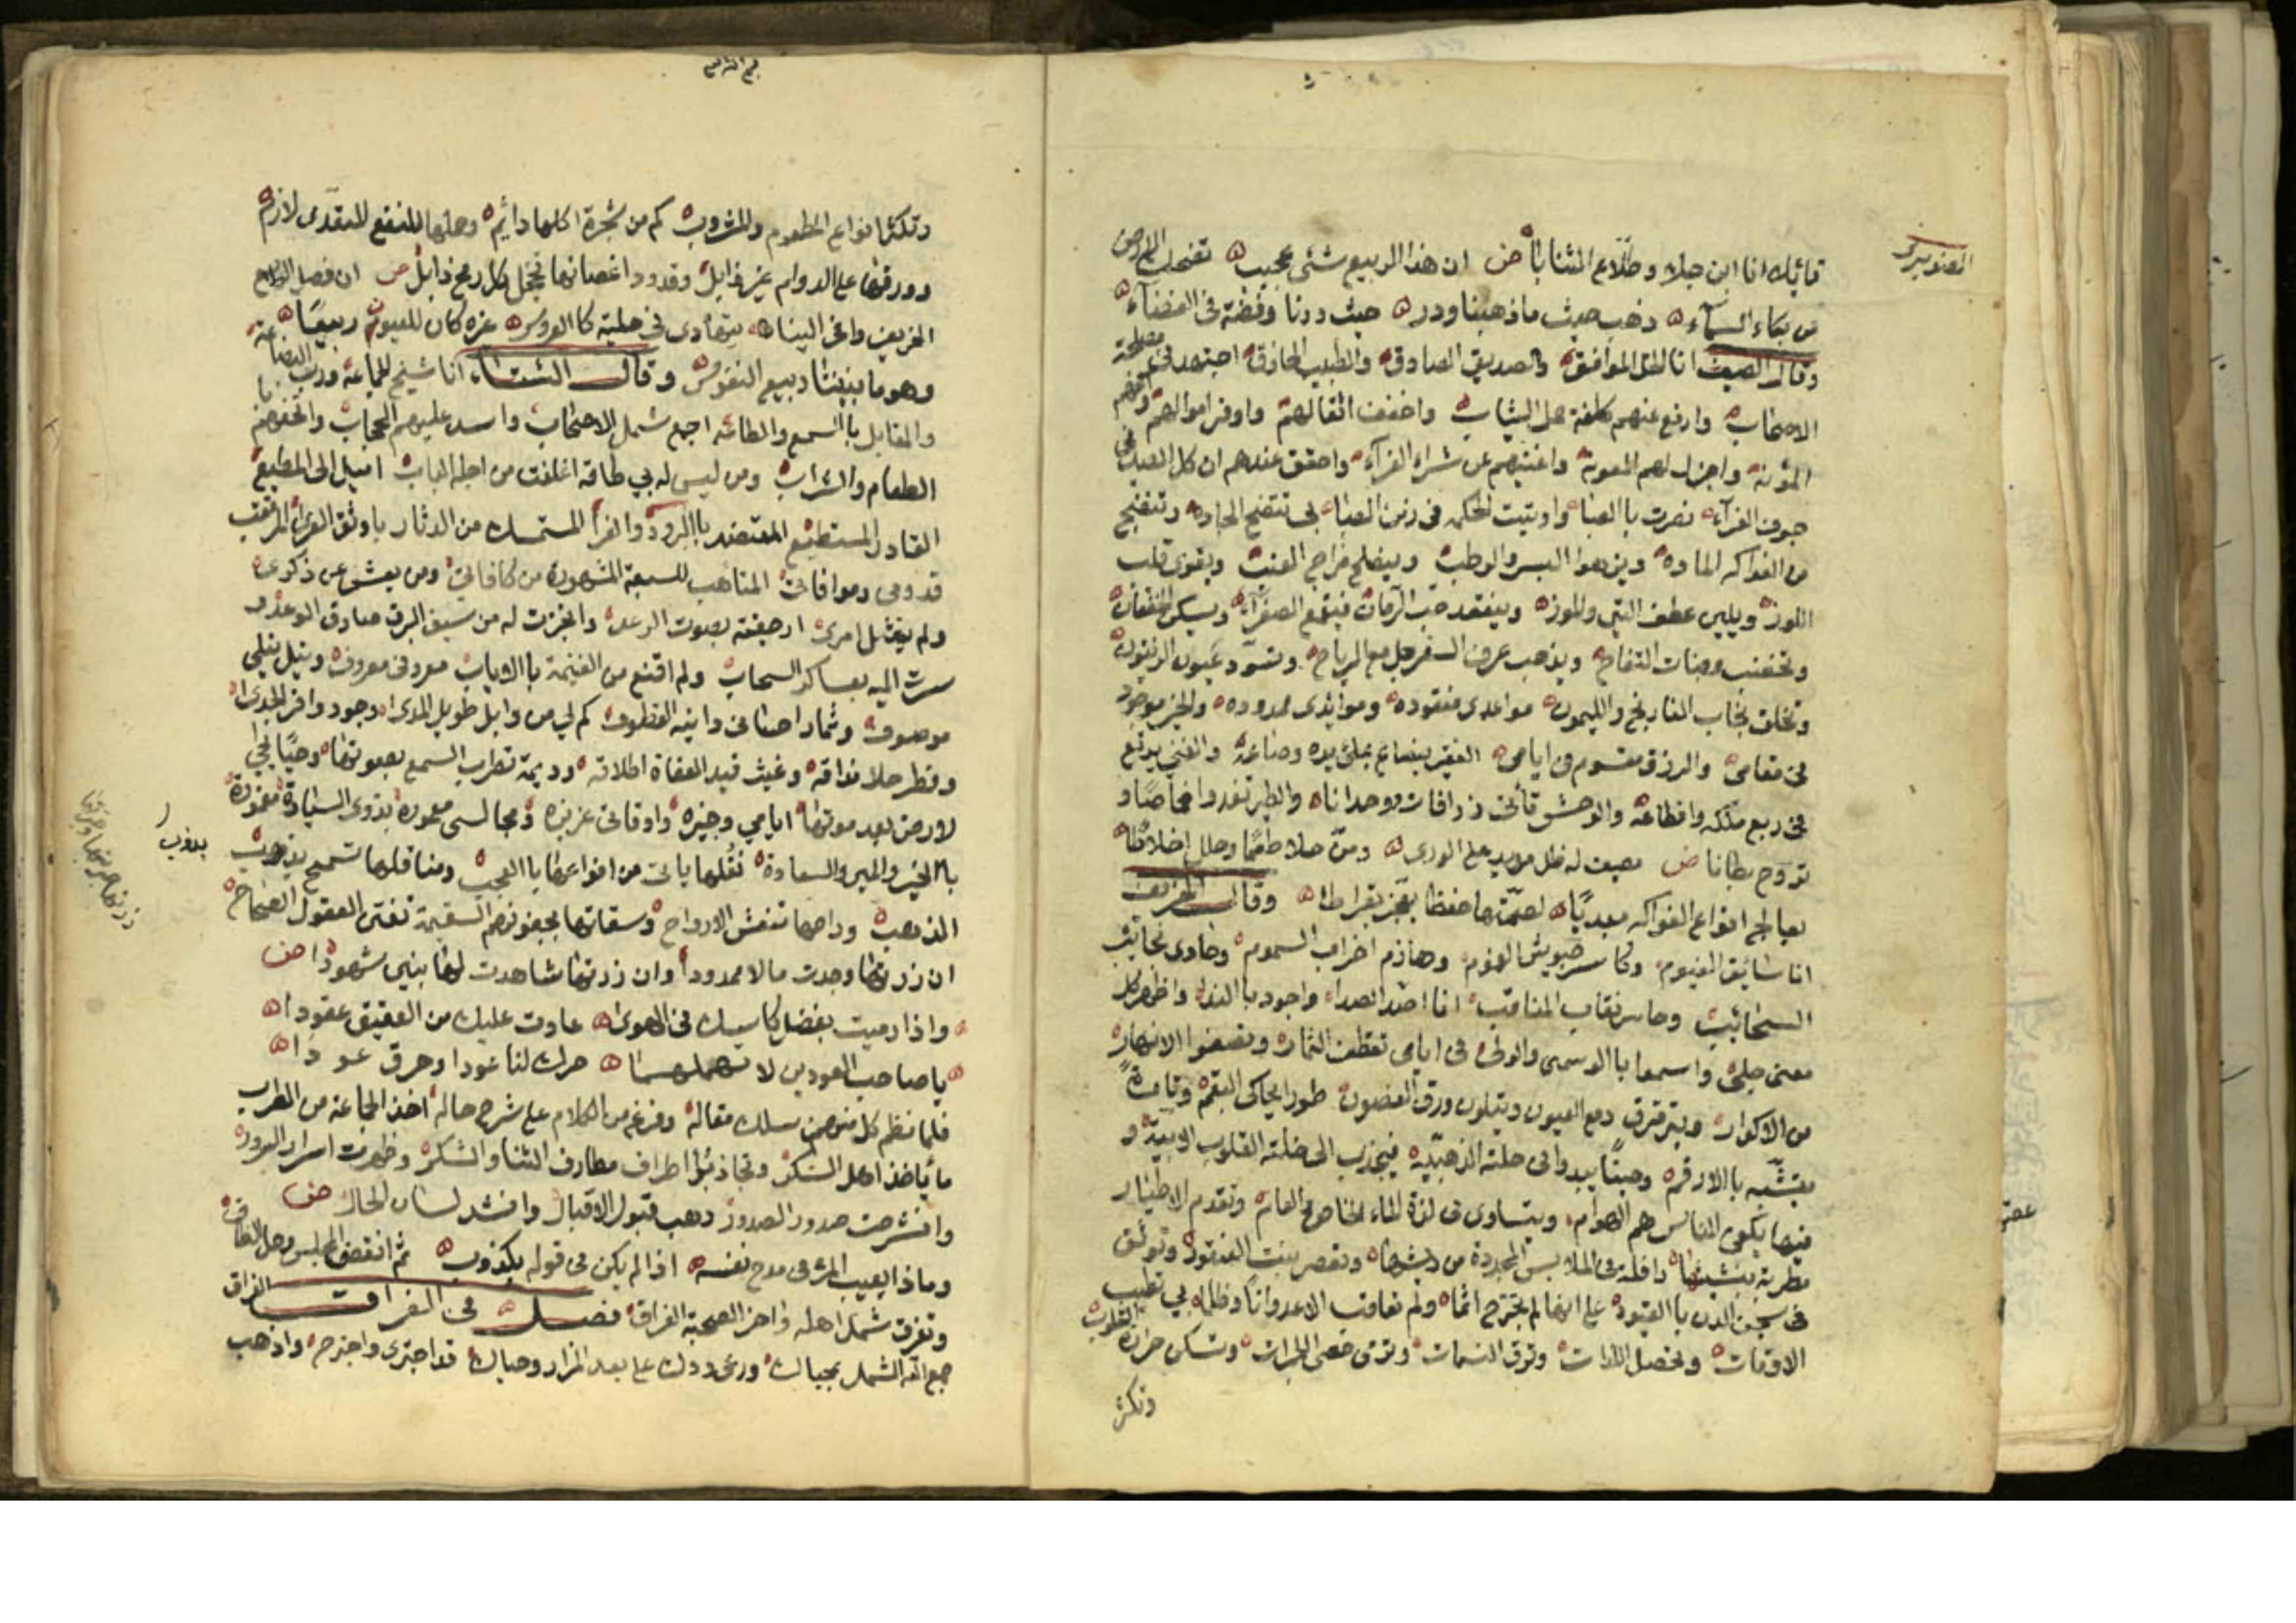 قائلا انا ابن جلا وطلاع الثنايا ان هذا الربيع شئ عجيب تضحك الارض
من بكاء السماء ذهب حيث ما ذهبنا ودر حيث درنا وفضة فى الفضاء
وقال الصيف انا الخل الموافق والصديق الصادق والطبيب الحاذق اجتهد فى مصلحة
الاصحاب وارفع عنهم كلفة حمل الثياب واخفف اثقالهم واوفر اموالهم واكفيهم
المؤنة واجزل لهم المعونة واغنيهم عن شراء الفراء واحقق عندهم ان كل الصيد فى
جوف الفراء نصرت بالصبا واوتيت الحكم فى زمن الصبا بى تتضح الجاده وتنضج
من الفواكه الماده ويزهو البسر والرطب وينصلح مزاج العنب ويقوى قلب
اللوز ويلين عطف التين والموز وينعقد حب الرمان فيقمع الصفراء ويسكن الخفقان
وتخضب وجنات التفاح ويذهب عرف السفرجل مع الرياح وتسود عيون الزيتون
وتخلق تيجان النارنج والليمون مواعدى منقوده وموائدى ممدوده والخير موجود
فى مقامى والرزق مقسوم فى ايامى الفقير ينصاع بملئ مده وصاعه والغنى يرتع
فى ربع ملكه واقطاعه والوحش تأتى زرافات ووحدانا والطير تغدوا خماصا و
تروح بطانا مصيف له ظل مديد على الورى ومن حلا طعما وحلل اخلاطا
يعالج انواع الفواكه مبديا لصحتها حفظا يعجز بقراطا وقال الخريف
انا سائق الغيوم وكاسر جيوش الغموم وهازم احزاب السموم وحادى نجائب
السحائب وحاسر نقاب المناقب انا اصد الصدا واجود بالندا واظهر كل
معنى جلى واسموا بالوسمى والولى فى ايامى تقطف الثمار وتصفوا الانهار
من الاكدار ويترقرق دمع العيون ويتلون ورق الغصون طورا يحاكى البقم وتارة
يتشبه بالارقم وحينا يبدوا فى حلته الذهبية فيجذب الى خلته القلوب الابية و
فيها يكفى الناس هم الهوام ويتساوى فى لذة الماء الخاص والعام وتقدم الاطيار
مطربة بنشيشها رافلة فى الملابس المجددة من ريشها وتعصر بنت العنقود وتوثق
فى سجن الدن بالقيود على انها لم تجترح اثما ولم تعاقب الا عدوانا وظلما بى تطيب
الاوقات وتحصل اللذات وترق النسمات وترمى حصى الجمرات وتسكن حرارة القلوب
وتكثر
وتكثر انواع المطعوم والمشروب كم من شجرة اكلها دائم وحملها للنفع المتعدى لازم
وورقها على الدوام غير ذابل وقدود اغصانها تخجل كل رمح ذابل ان فصل
الخريف وافى الينا يتهادى فى حلية كالعروس غيره كان للعيون ربيعا
وهو ما بيننا ربيع النفوس وقال الشتاء انا شيخ الجماعة ورب البضاعة
والمقابل بالسمع والطاعه اجمع شمل الاصحاب واسدل عليهم الحجاب واتحفهم
الطعام والشراب ومن ليس له بى طاقه اغلقت من اجله الباب اميل الى المطيع
القادر المستطيع المعتضد بالبرود والفرا المستمسك من الدثار باوثق العرى المرتقب
قدومى وموافاتى المتاهب للسبعة المشهورة من كافاتى ومن يعش عن ذكرى
ولم يمتثل امرى ارجفته بصوت الرعد وانجزت له من سيف البرق صادق الوعد و
سرت اليه بعساكر السحاب ولم اقنع من الغنيمة بالاياب معروفى معروف ونيل نيلى
موصوف وثمار احسانى دانية القطوف كم لى من وابل طويل المدى وجود وافر الجدى
وقطر حلا مذاقه وغيث قيد العفاة اطلاقه وديمة تطرب السمع بصوتها وحيا يحيى
الارض بعد موتها ايامى وجيزه واوقاتى عزيزه ومجالسى معموره بذوى السيادة مغمورة
بالخير والمير والسعادة نقلها ياتى من انواعه بالعجب ومناقلها تسمح بذهب
المذهب وراحها تنعش الارواح وسقاتها بجفونهم السقيمة تفتن العقول الصحاح
ان زرتها وجدت مالا ممدودا وان زرتها شاهدت لها بنين شهودا
واذا رميت بفضل كاسك فى الهوى عادت عليك من العقيق عقودا
يا صاحب العودين لا تهملهما حرك لنا عودا وحرق عودا
فلما نظم كل منهم سلك مقاله وفرغ من الكلام على شرح حاله اخذ الجماعة من الطرب
ما ياخذ اهل السكر وتجاذبوا اطراف مطارف الثنا والشكر وظهرت اسرار السرور
وانشرحت صدور الصدور وهب قبول الاقبال وانشد لسان الحال
وماذا يعيب المرء فى مدح نفسه اذا لم يكن فى قوله بكذوب ثم انقضى المجلس وحل النطاق
وتفرق شمل اهله واخر الصحبة الفراق فصل فى الفراق
جمع الله الشمل بجبالك ورعى ودك على بعد المزار وحبالك قد اجترى واجترح واذهب